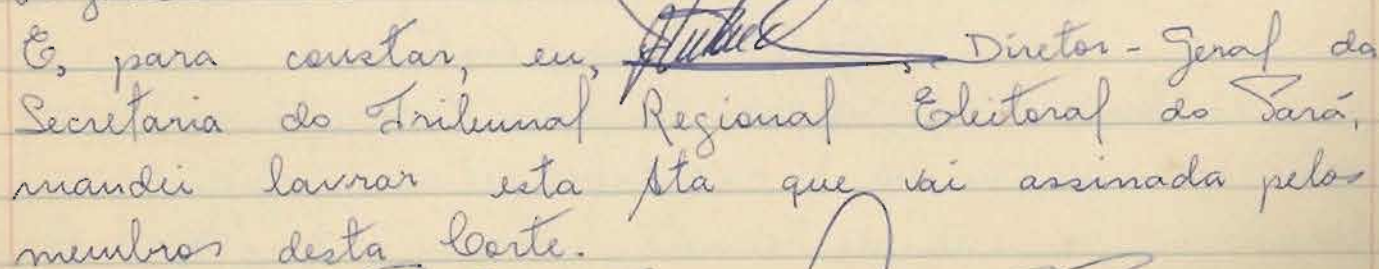 E, para constar, eu, , Diretor-Geral da
Secretaria do Tribunal Regional Eleitoral do Pará,
mandei lavrar esta Ata que vai assinada pelos
membros desta Corte.